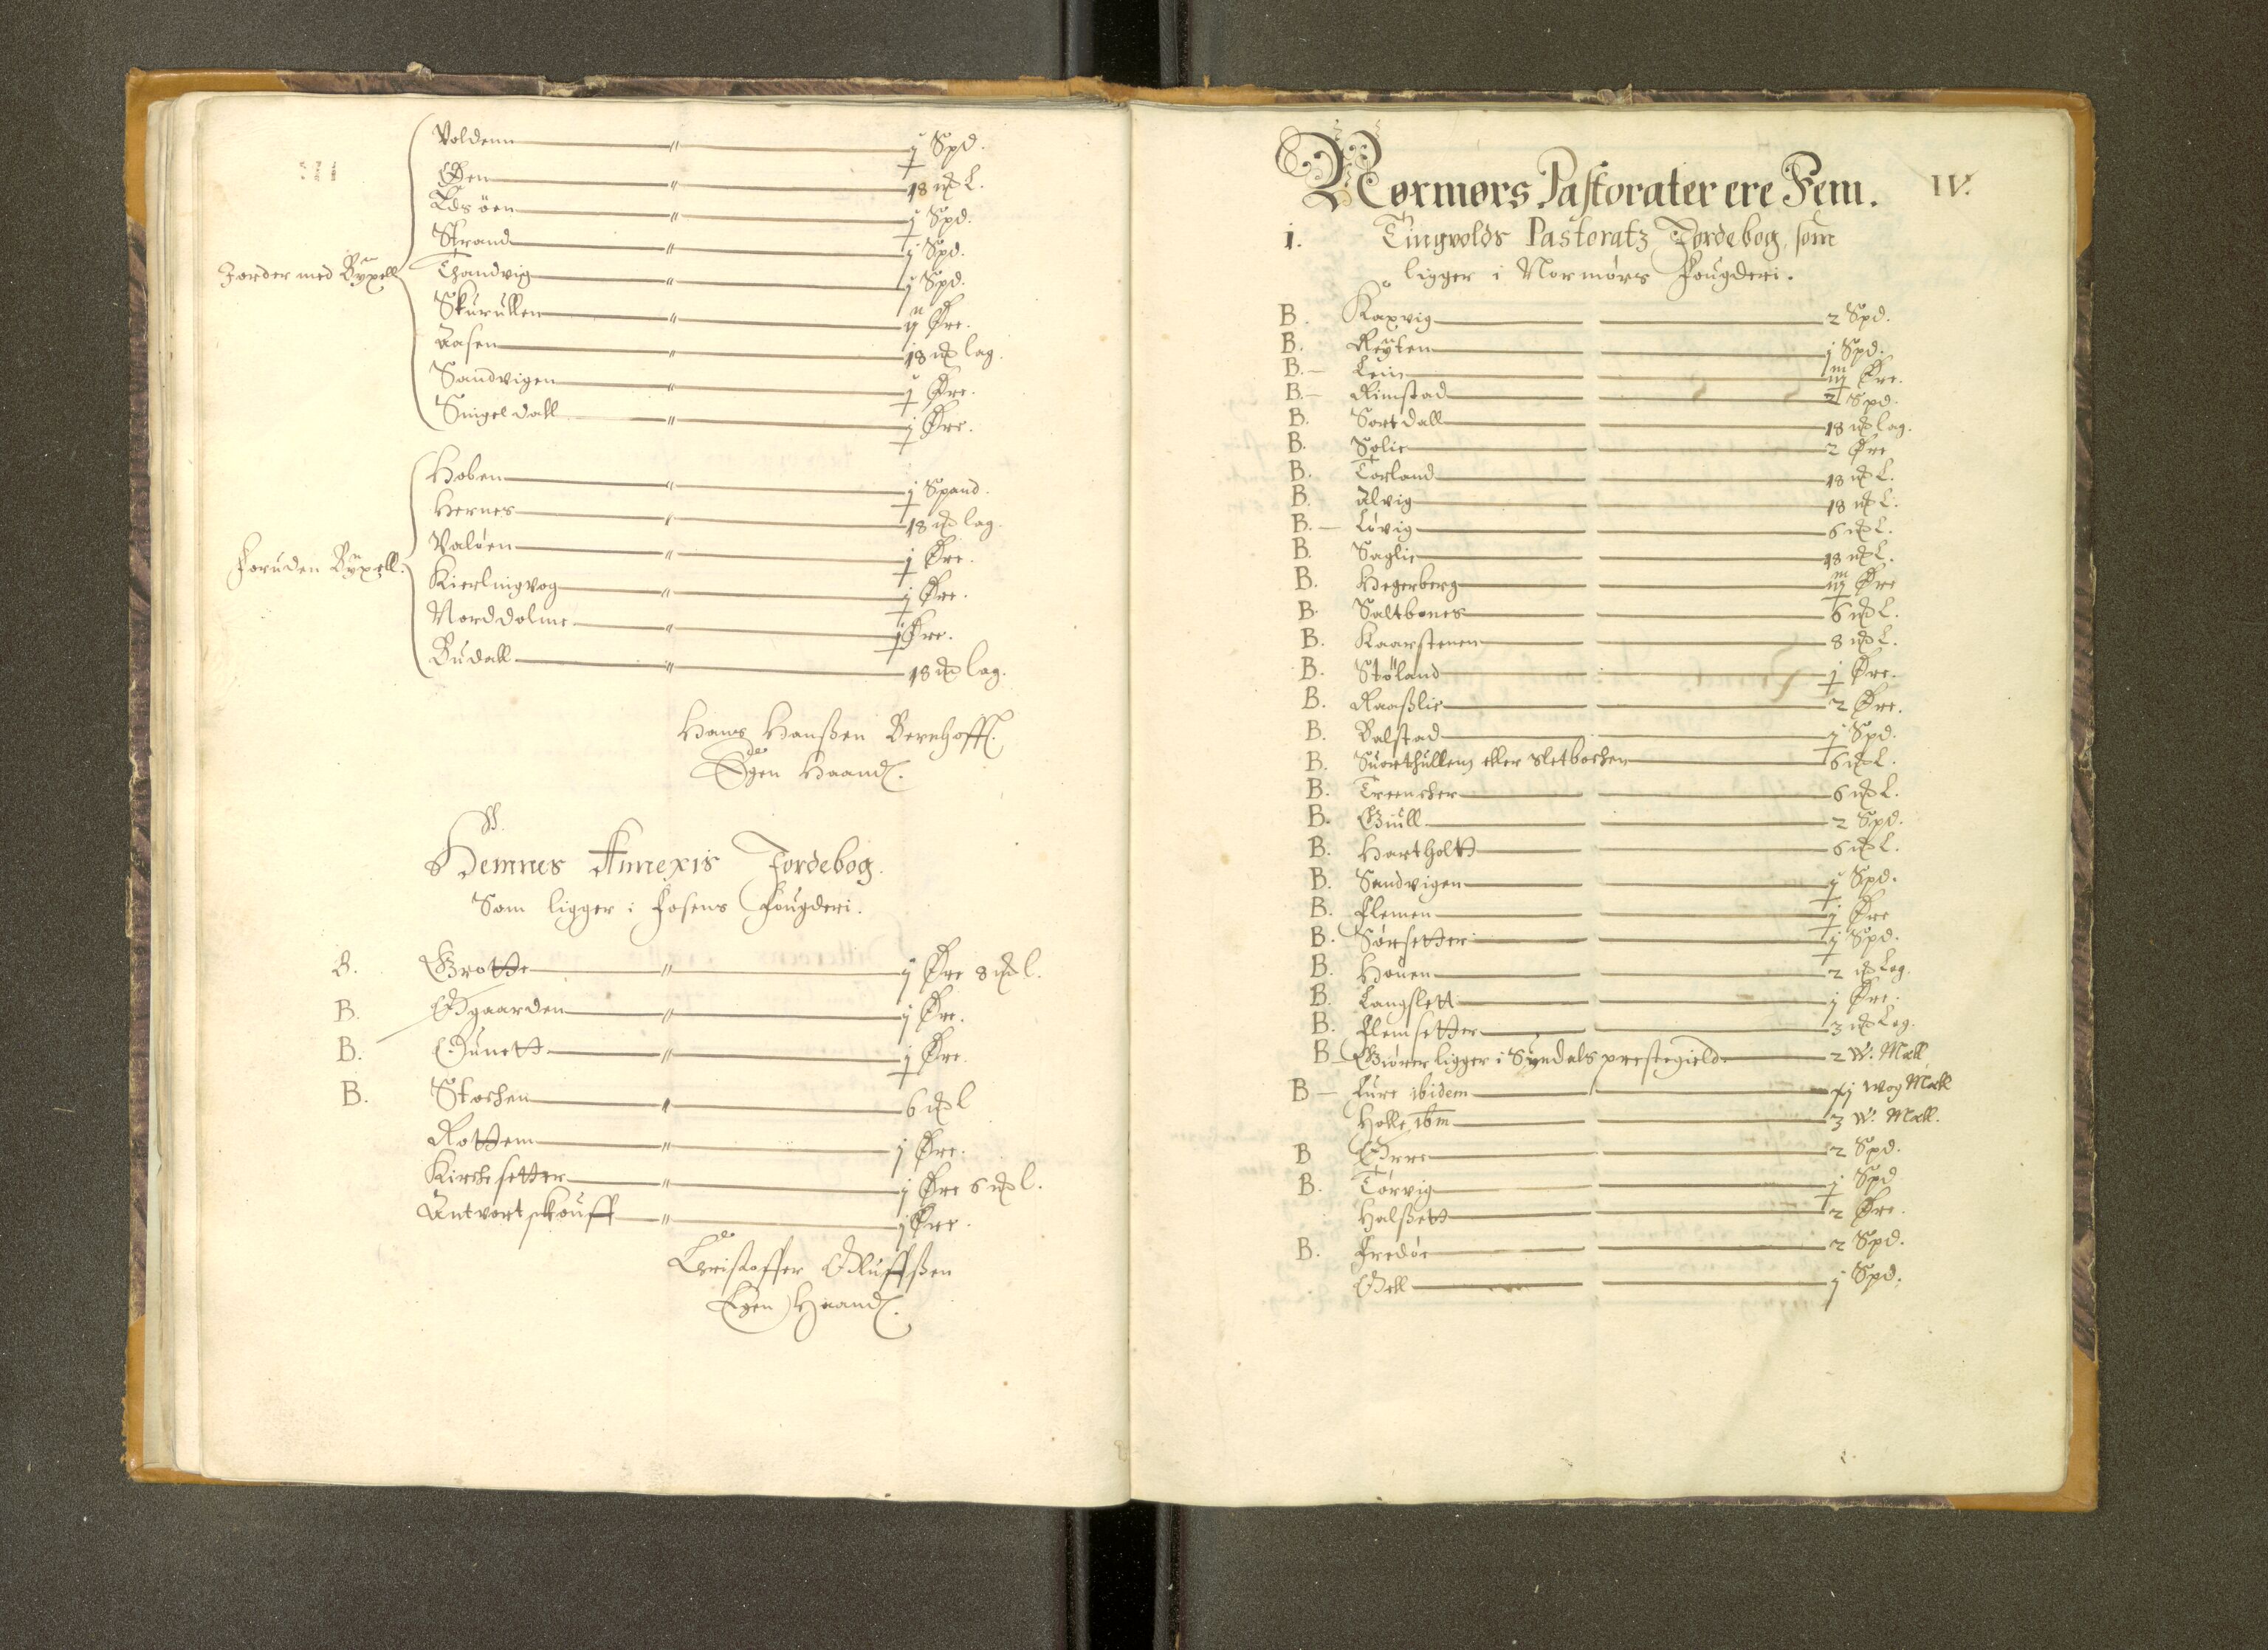 III
Jorder med Byxell
Voldenn " j Spd.
Øen " 18 mk L.
Edsøen " j Spd.
Strand " j Spd.
Thandvig " j Spd.
Skurullen " ij Øre.
Aasen " 18 mk lag.
Sandvigen " j Øre.
Singeldall " j Øre.
Foruden Byxell.
Hoben " j Spand.
Hernes " 18 mk lag.
Valøen " j Øre.
Kierlingvog " j Øre.
Norddolme " j Øre.
Budall " 18 mk lag.
Hans Hanßen Bernhoff
Egen Haand.
Hemnes Annexis Jordebog.
Som ligger i Fosens Fougderi.
B. Grotte " j Øre 8 mk l.
B. Øgaarden " j Øre.
B. Eunett " j Øre.
B. Stochen " 6 mk l
Rottem " j Øre.
Kirchesetter " j Øre 6 mk l.
Antvortskouff " j Øre.
Christoffer Olluffßen
Egen Haand.
Nørmørs Pastorater ere Fem. IV.
1. Tingvolds Pastoratz Jordebog, som
ligger i Normørs Fougderi.
B. Kaxvig 2 Spd.
B. Røyten j Spd.
B. Lein iij Øre.
B. Rimstad 2 Spd.
B. Sortdall 18 mk lag.
B. Solie 2 Øre
B. Torland 18 mk L.
B. Alvig 18 mk L.
B. Løvig 6 mk L.
B. Saglie 18 mk L.
B. Hegerberg iij Øre
B. Saltbones 6 mk L.
B. Kaarstenen 8 mk L.
B. Støland j Øre.
B. Raaßlie 2 Øre.
B. Balstad j Spd.
B. Suorthullenn eller Sletbachen 6 mk L.
B. Treencher 6 mk L.
B. Giull 2 Spd.
B. Hartholtt 6 mk L.
B. Sandvigen j Spd.
B. Flemen j Øre
B. Sørsetter j Spd.
B. Houen 2 mk Lag.
B. Langslett j Øre.
B. Flemsetter 3 mk Lag.
B. Giører ligger i Syndals prestegield. 2 W. Mæll
B Fure ibidem xj wog Mæll
Holle ibm 3 W. Mæll.
B Ørre 2 Spd.
B. Torvig j Spd
Halßett 2 Øre.
B. Fredøe 2 Spd.
Øell j Spd.